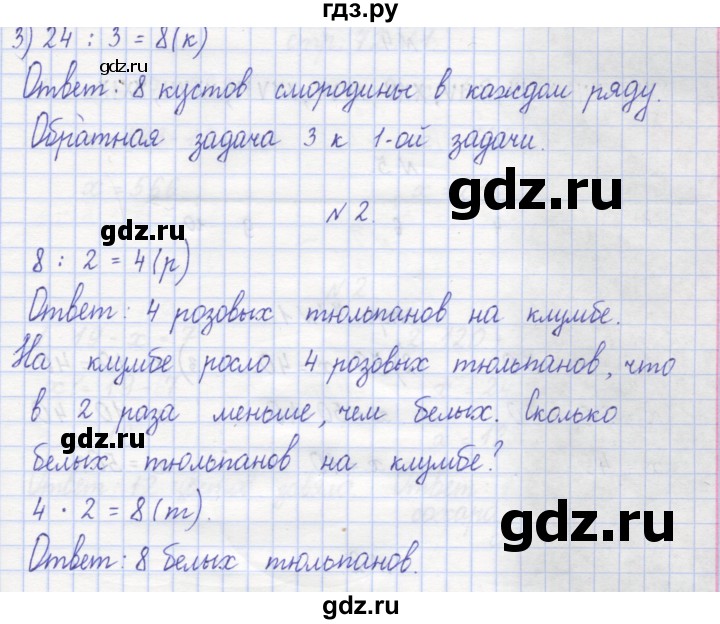 гдз.ру
3) 24 : 3 = 8(к)
gdz.ru
Ответ: 8 кустов смородины в каждом ряду.
Обратная задача 3 к 1-ой задачи.
gdz.ru
N 2.
gdz.ru
8 : 2 = 4(р)
Ответ: 4 розовых тюльпанов на клумбе.
gdz.ru
На клумбе росло 4 розовых тюльпанов, что
в 2 раза меньше, чем белых. Сколько
gdz.ru
белых тюльпанов на клумбе?
4 · 2 = 8(т).
gdz.ru
Ответ: 8 белых тюльпанов.
gdz.ru